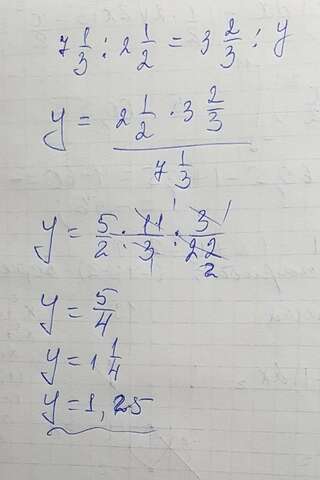 7 1/3 : 2 1/2 = 3 2/3 : y
y = (2 1/2 · 3 2/3) / (7 1/3)
y = 5/2 · 11/3 · 3/22
1 1
2
y = 5/4
y = 1 1/4
y = 1,25